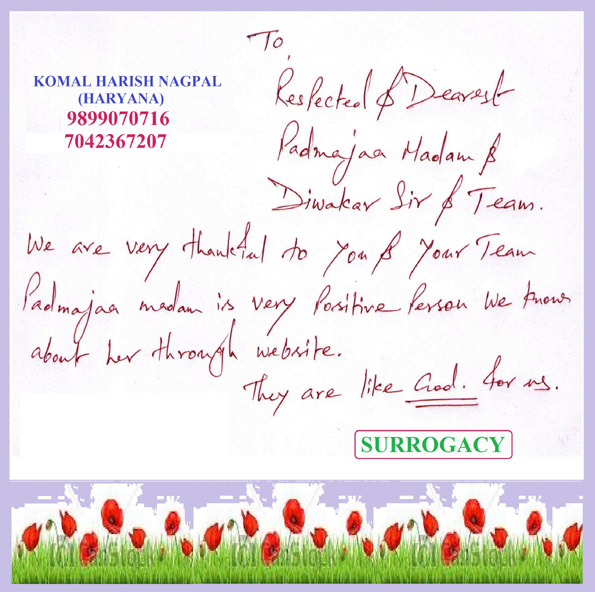 To,
KOMAL HARISH NAGPAL
(HARYANA)
9899070716
7042367207
Respected & Dearest
Padmajaa Madam &
Diwakar Sir & Team.
We are very thankful to you & your Team
Padmajaa madam is very Porsitive Person We know
about her through website.
They are like God. for us.
SURROGACY